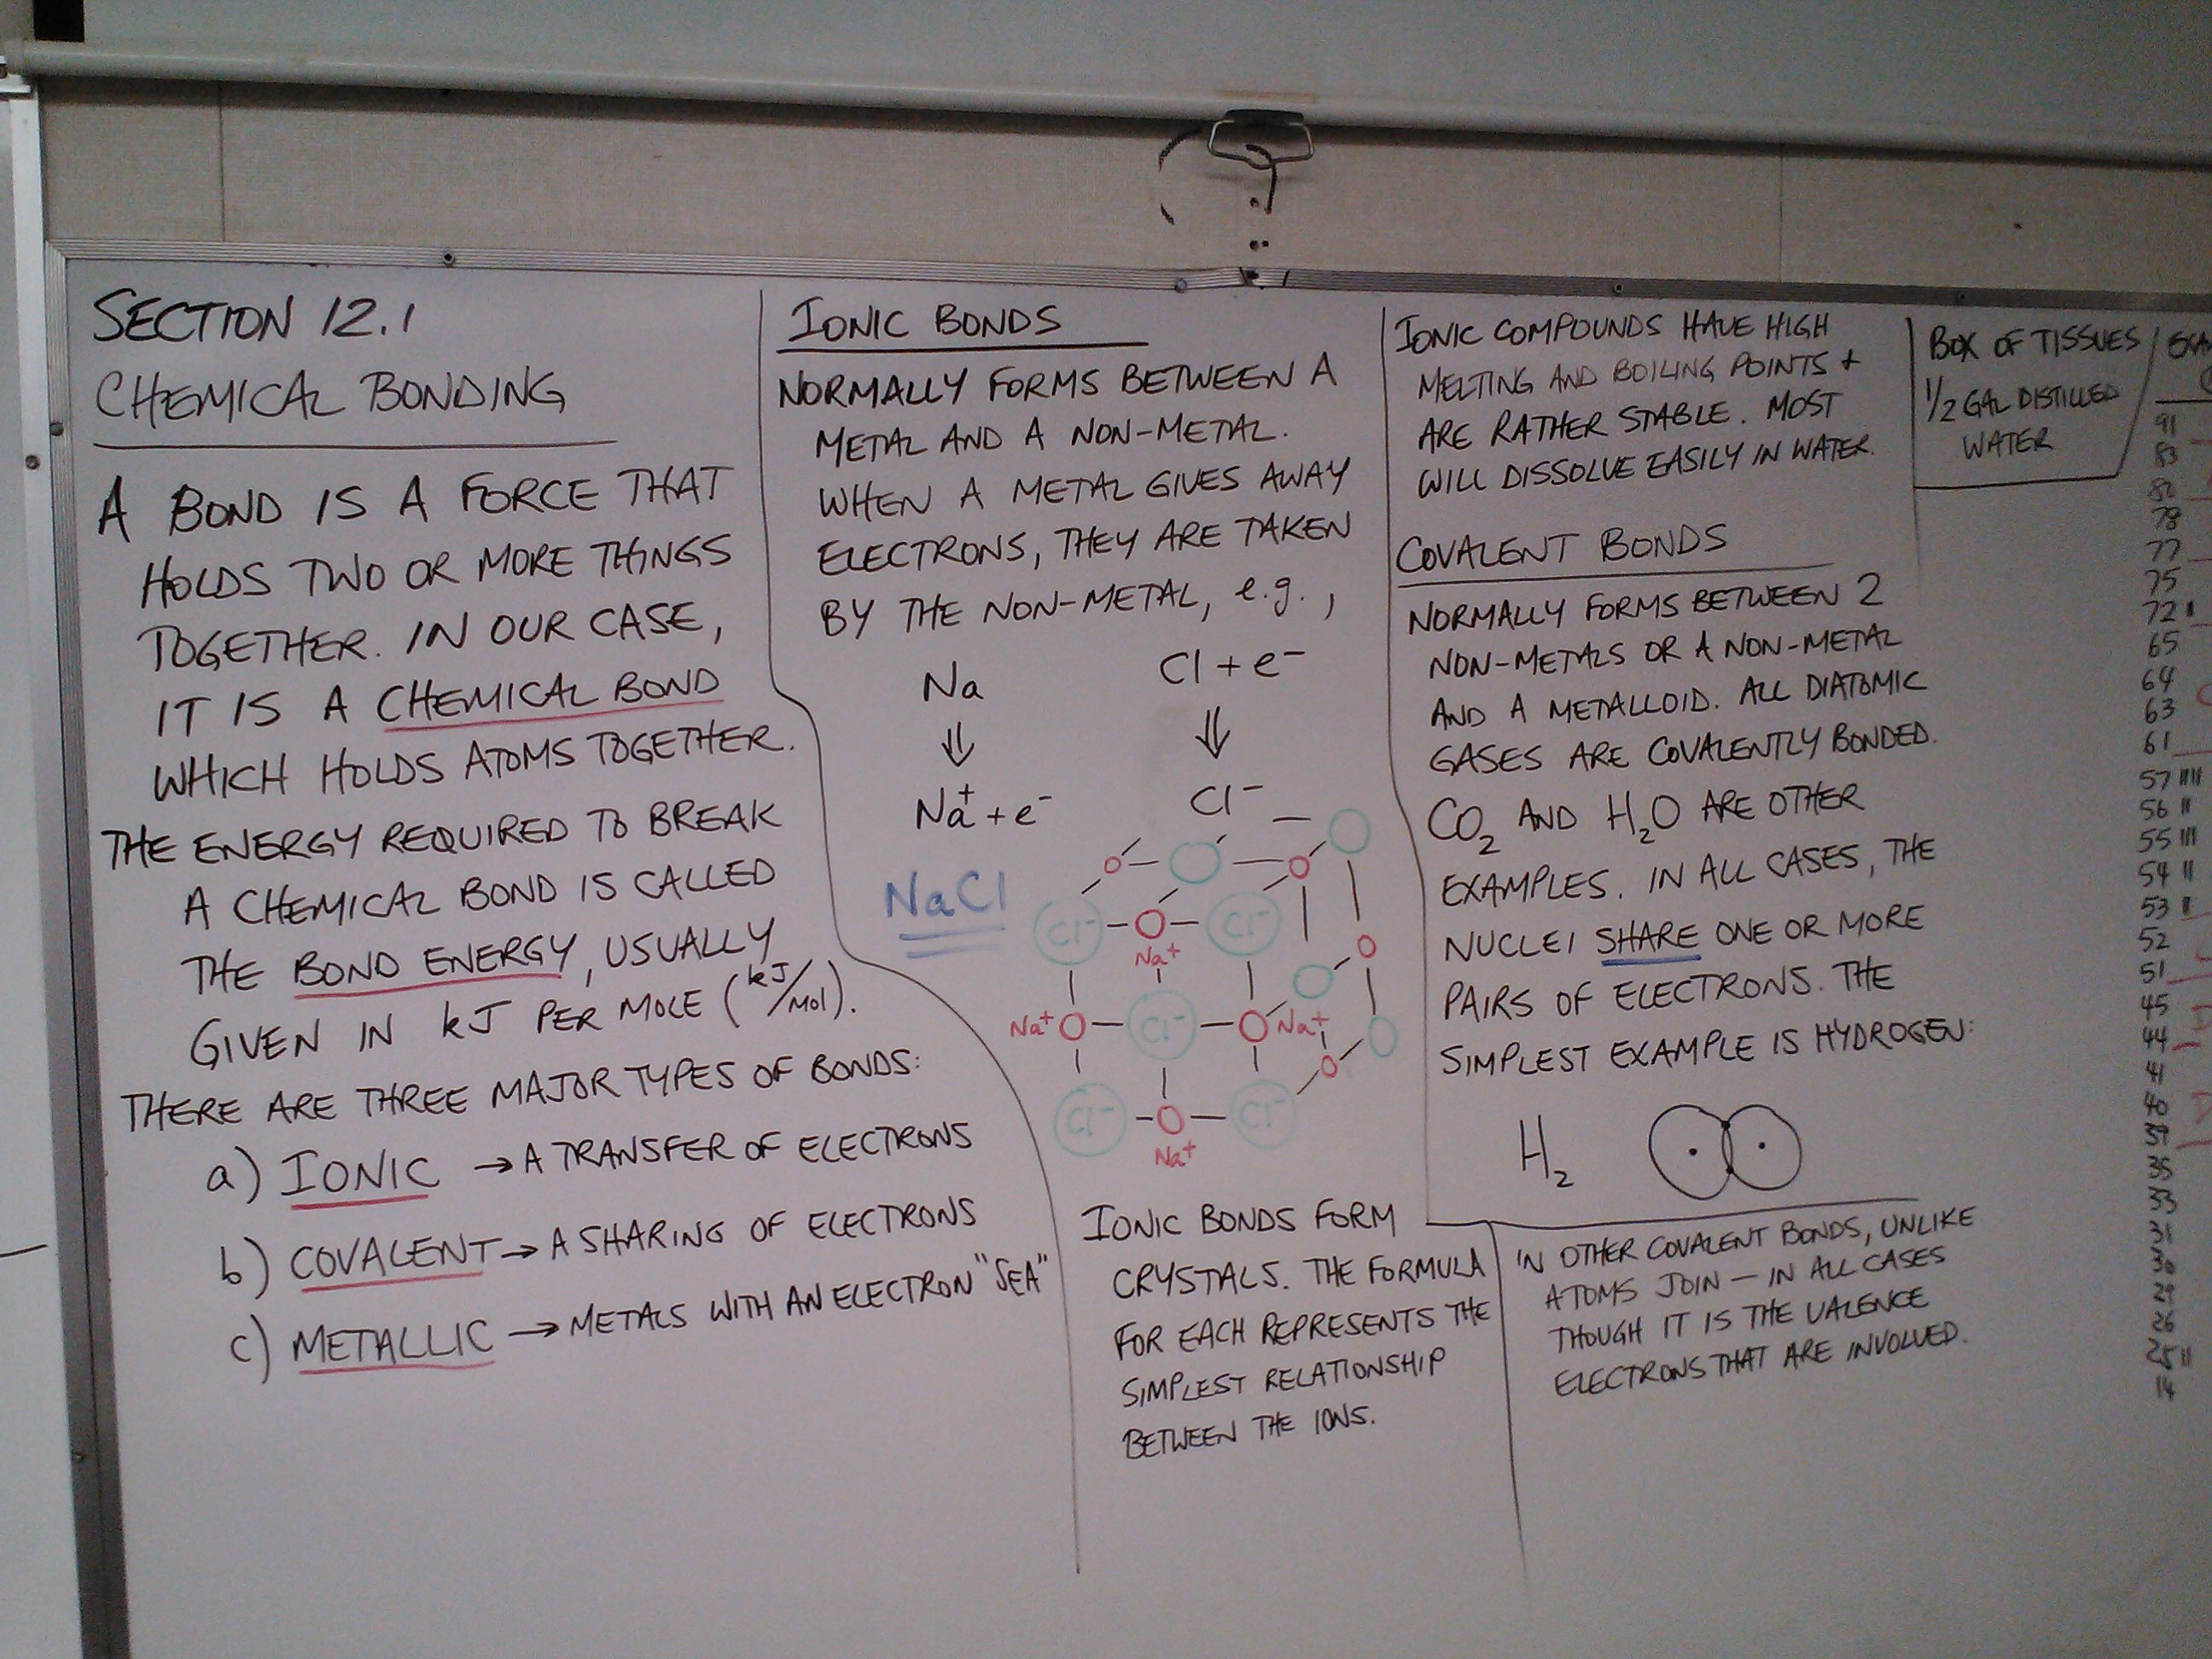 SECTION 12.1
CHEMICAL BONDING
A BOND IS A FORCE THAT
HOLDS TWO OR MORE THINGS
TOGETHER. IN OUR CASE,
IT IS A CHEMICAL BOND
WHICH HOLDS ATOMS TOGETHER.
THE ENERGY REQUIRED TO BREAK
A CHEMICAL BOND IS CALLED
THE BOND ENERGY, USUALLY
GIVEN IN kJ PER MOLE (kJ/mol).
THERE ARE THREE MAJOR TYPES OF BONDS:
a) IONIC → A TRANSFER OF ELECTRONS
b) COVALENT → A SHARING OF ELECTRONS
c) METALLIC → METALS WITH AN ELECTRON "SEA"
IONIC BONDS
NORMALLY FORMS BETWEEN A
METAL AND A NON-METAL.
WHEN A METAL GIVES AWAY
ELECTRONS, THEY ARE TAKEN
BY THE NON-METAL, e.g.,
Na Cl + e⁻
⇓ ⇓
Na⁺ + e⁻ Cl⁻
NaCl
Cl⁻ Cl⁻
Na⁺
Na⁺ Cl⁻ Na⁺
Cl⁻ Cl⁻
Na⁺
IONIC BONDS FORM
CRYSTALS. THE FORMULA
FOR EACH REPRESENTS THE
SIMPLEST RELATIONSHIP
BETWEEN THE IONS.
IONIC COMPOUNDS HAVE HIGH
MELTING AND BOILING POINTS +
ARE RATHER STABLE. MOST
WILL DISSOLVE EASILY IN WATER.
COVALENT BONDS
NORMALLY FORMS BETWEEN 2
NON-METALS OR A NON-METAL
AND A METALLOID. ALL DIATOMIC
GASES ARE COVALENTLY BONDED.
CO₂ AND H₂O ARE OTHER
EXAMPLES. IN ALL CASES, THE
NUCLEI SHARE ONE OR MORE
PAIRS OF ELECTRONS. THE
SIMPLEST EXAMPLE IS HYDROGEN:
H₂
IN OTHER COVALENT BONDS, UNLIKE
ATOMS JOIN — IN ALL CASES
THOUGH IT IS THE VALENCE
ELECTRONS THAT ARE INVOLVED.
BOX OF TISSUES
1/2 GAL DISTILLED
WATER
91
83
80
78
77
75
72 I
65
64
63
61
57 IIII
56 II
55 III
54 II
53 II
52
51
45
44
41
40
39
35
33
31
30
29
26
25 II
14